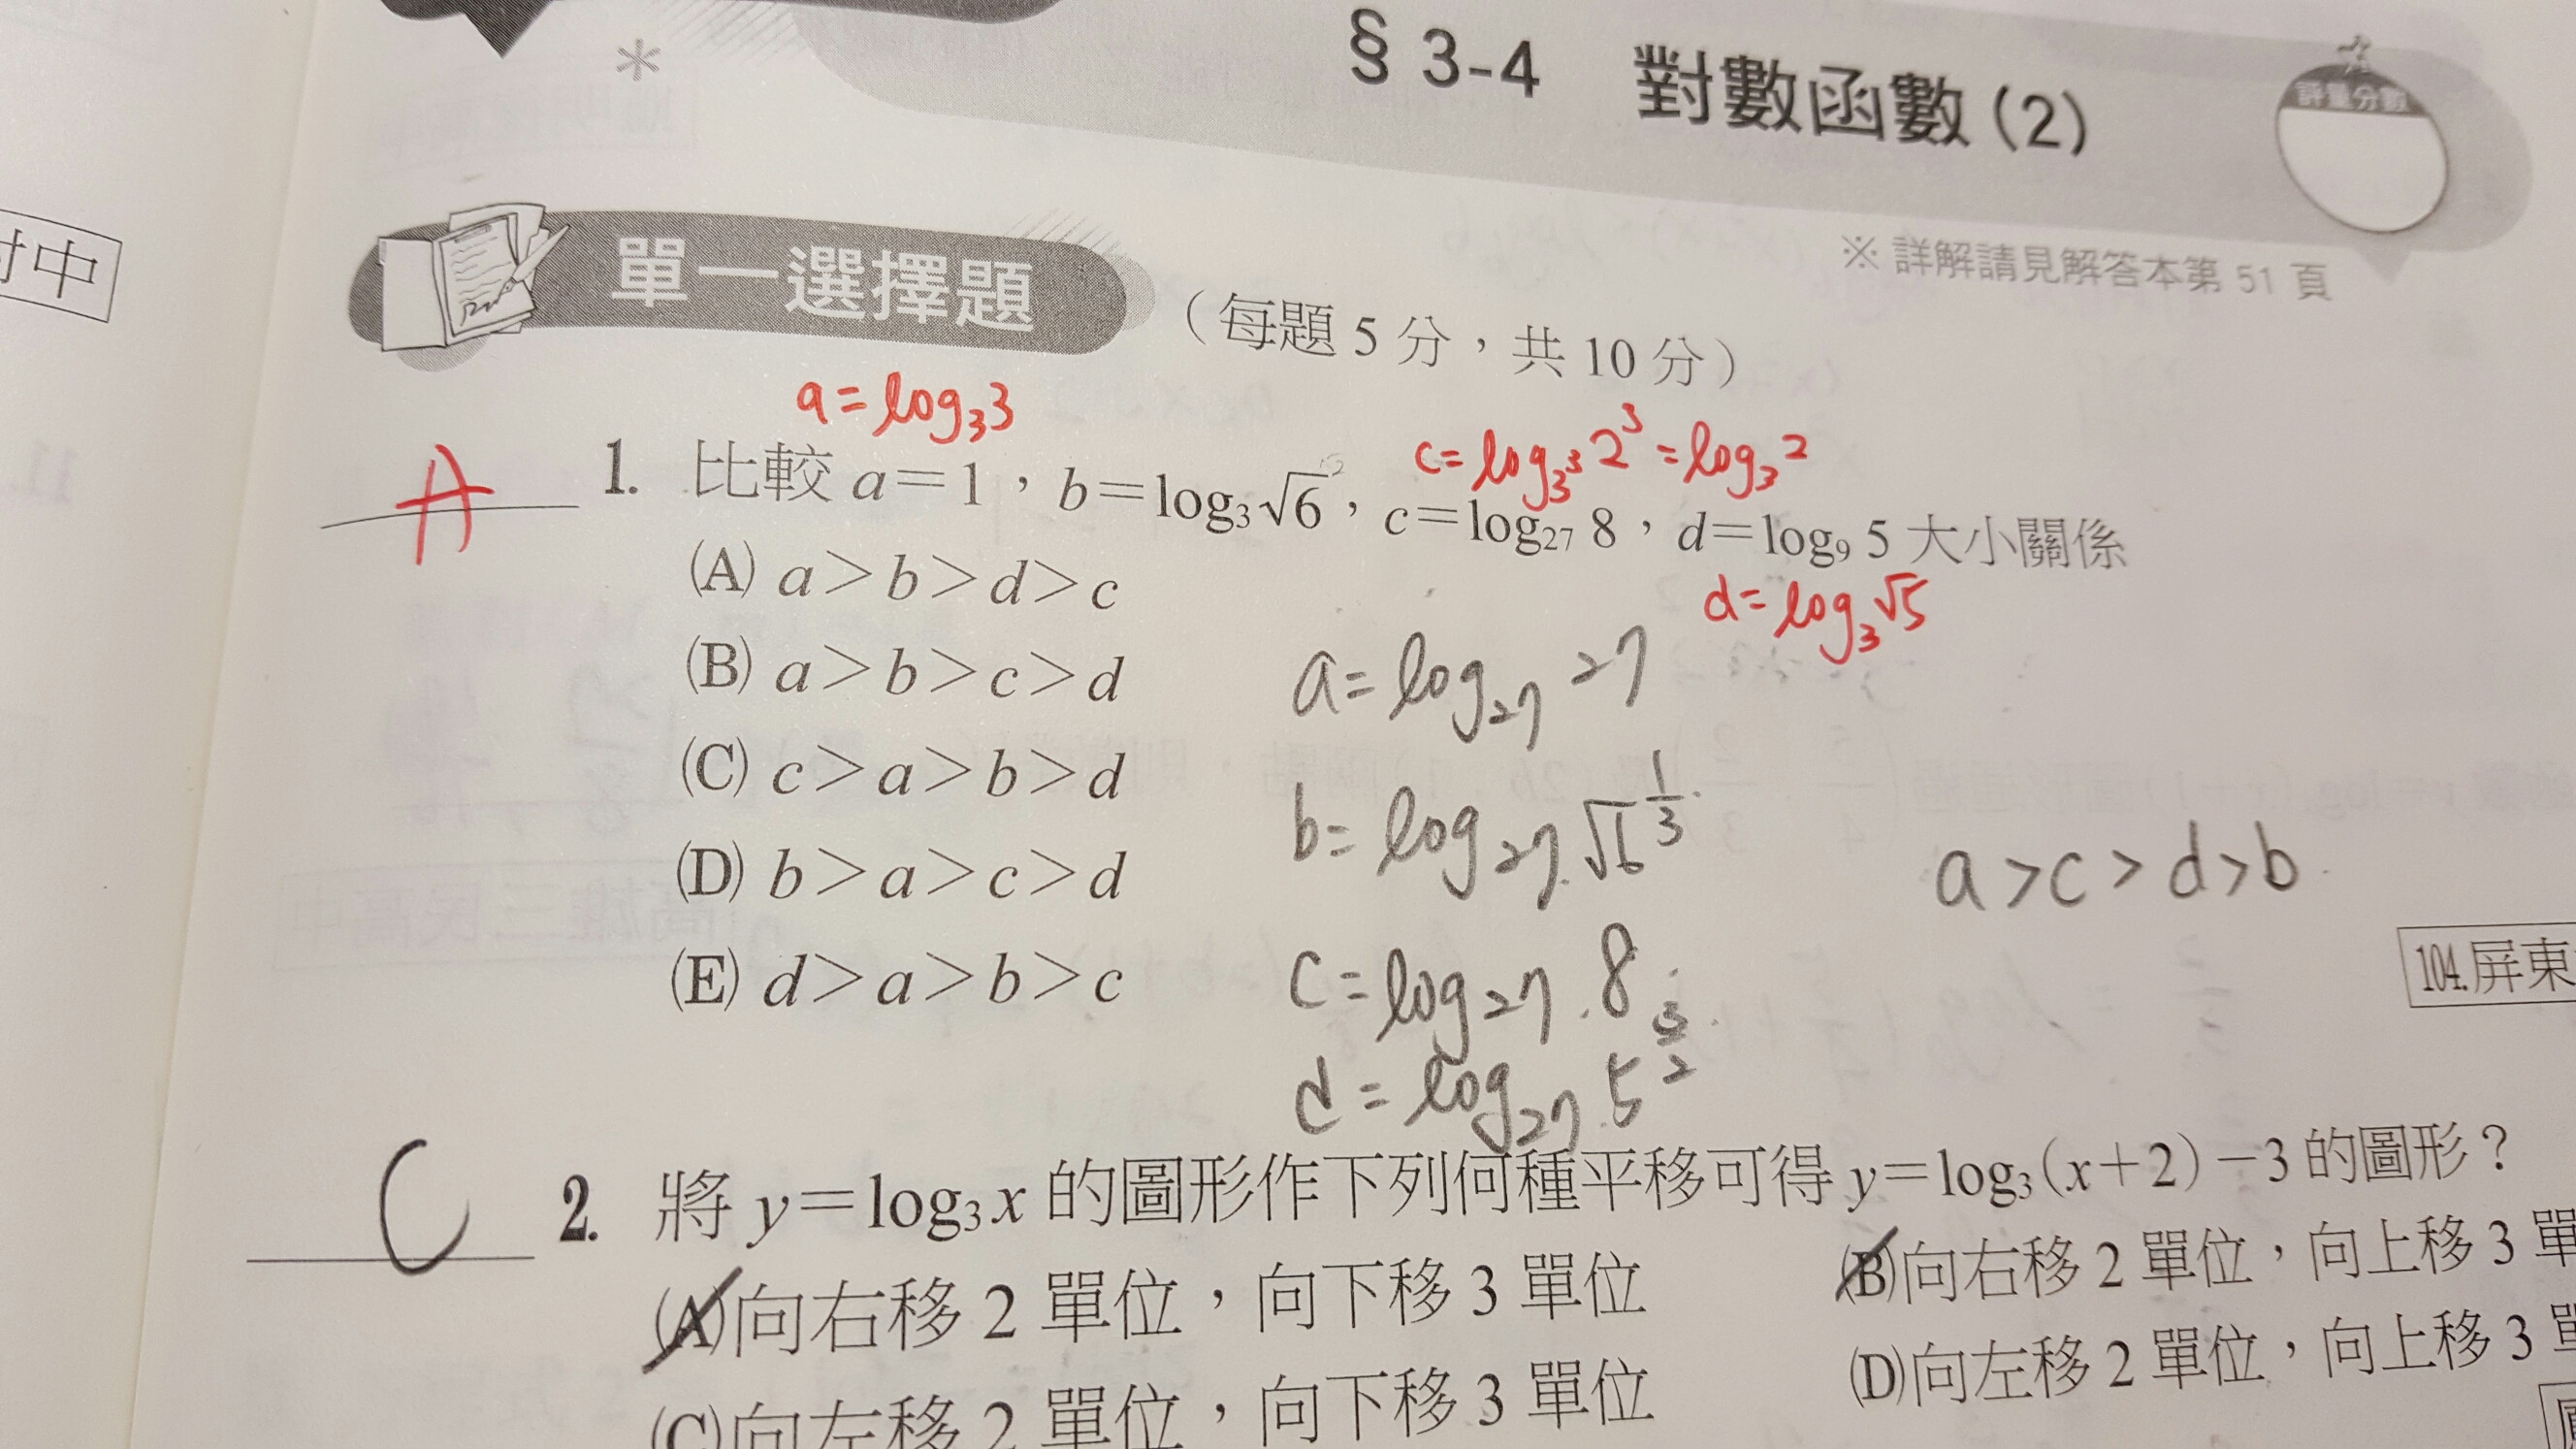 § 3-4 對數函數(2)
評量分數
※ 詳解請見解答本第 51 頁
單一選擇題(每題 5 分,共 10 分)
a=log₃3
c=log₃³2³=log₃2
A 1. 比較 a=1,b=log₃√6,c=log₂₇ 8,d=log₉ 5 大小關係
d=log₃√5
(A) a>b>d>c
(B) a>b>c>d
(C) c>a>b>d
(D) b>a>c>d
(E) d>a>b>c
a=log₂₇27
b=log₂₇√6^(1/3)
c=log₂₇8
d=log₂₇5^(3/2)
a>c>d>b
104.屏東
C 2. 將 y=log₃x 的圖形作下列何種平移可得 y=log₃(x+2)-3 的圖形?
(A)向右移 2 單位,向下移 3 單位 (B)向右移 2 單位,向上移 3 單
(C)向左移 2 單位,向下移 3 單位 (D)向左移 2 單位,向上移 3 單